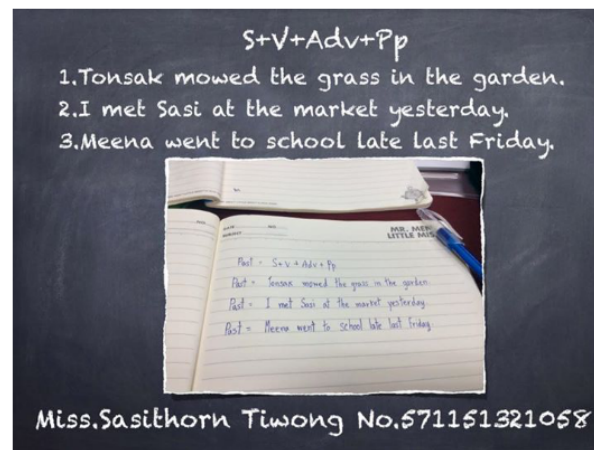 S+V+Adv+Pp
1.Tonsak mowed the grass in the garden.
2.I met Sasi at the market yesterday.
3.Meena went to school late last Friday.
MR. MEN
LITTLE MIS
Past = S+V+Adv+Pp
Past = Tonsak mowed the grass in the garden.
Past = I met Sasi at the market yesterday.
Past = Meena went to school late last Friday.
Miss.Sasithorn Tiwong No.571151321058